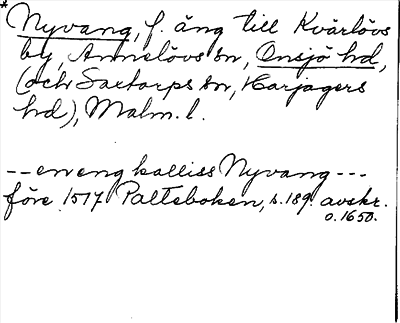 * Nyvang, f. äng till Kvärlövs
by, Annelövs sn, Onsjö hd,
(och Saxtorps sn, Harjagers
hd), Malm. l.
-- en eng kalliss Nyvang ---
före 1517 Palteboken, s. 189. avskr.
o. 1650.